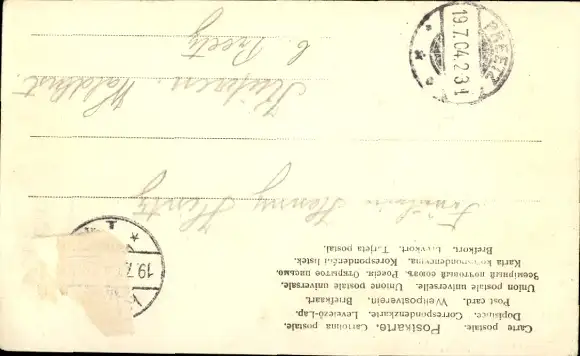 Carte postale. Postkarte. Cartolina postale.
Dopisnice. Correspondenzkarte. Levelező-Lap.
Post card. Weltpostverein. Briefkaart.
Union postale universelle. Unione postale universale.
Всемірный почтовый союзъ. Россія. Открытое письмо.
Karta korespondencyjna. Korespondenční lístek.
Brefkort. Brevkort. Tarjeta postal.
Fräulein Henny Hentz
b. Preetz
PREETZ
19.7.04.2-3
19.7